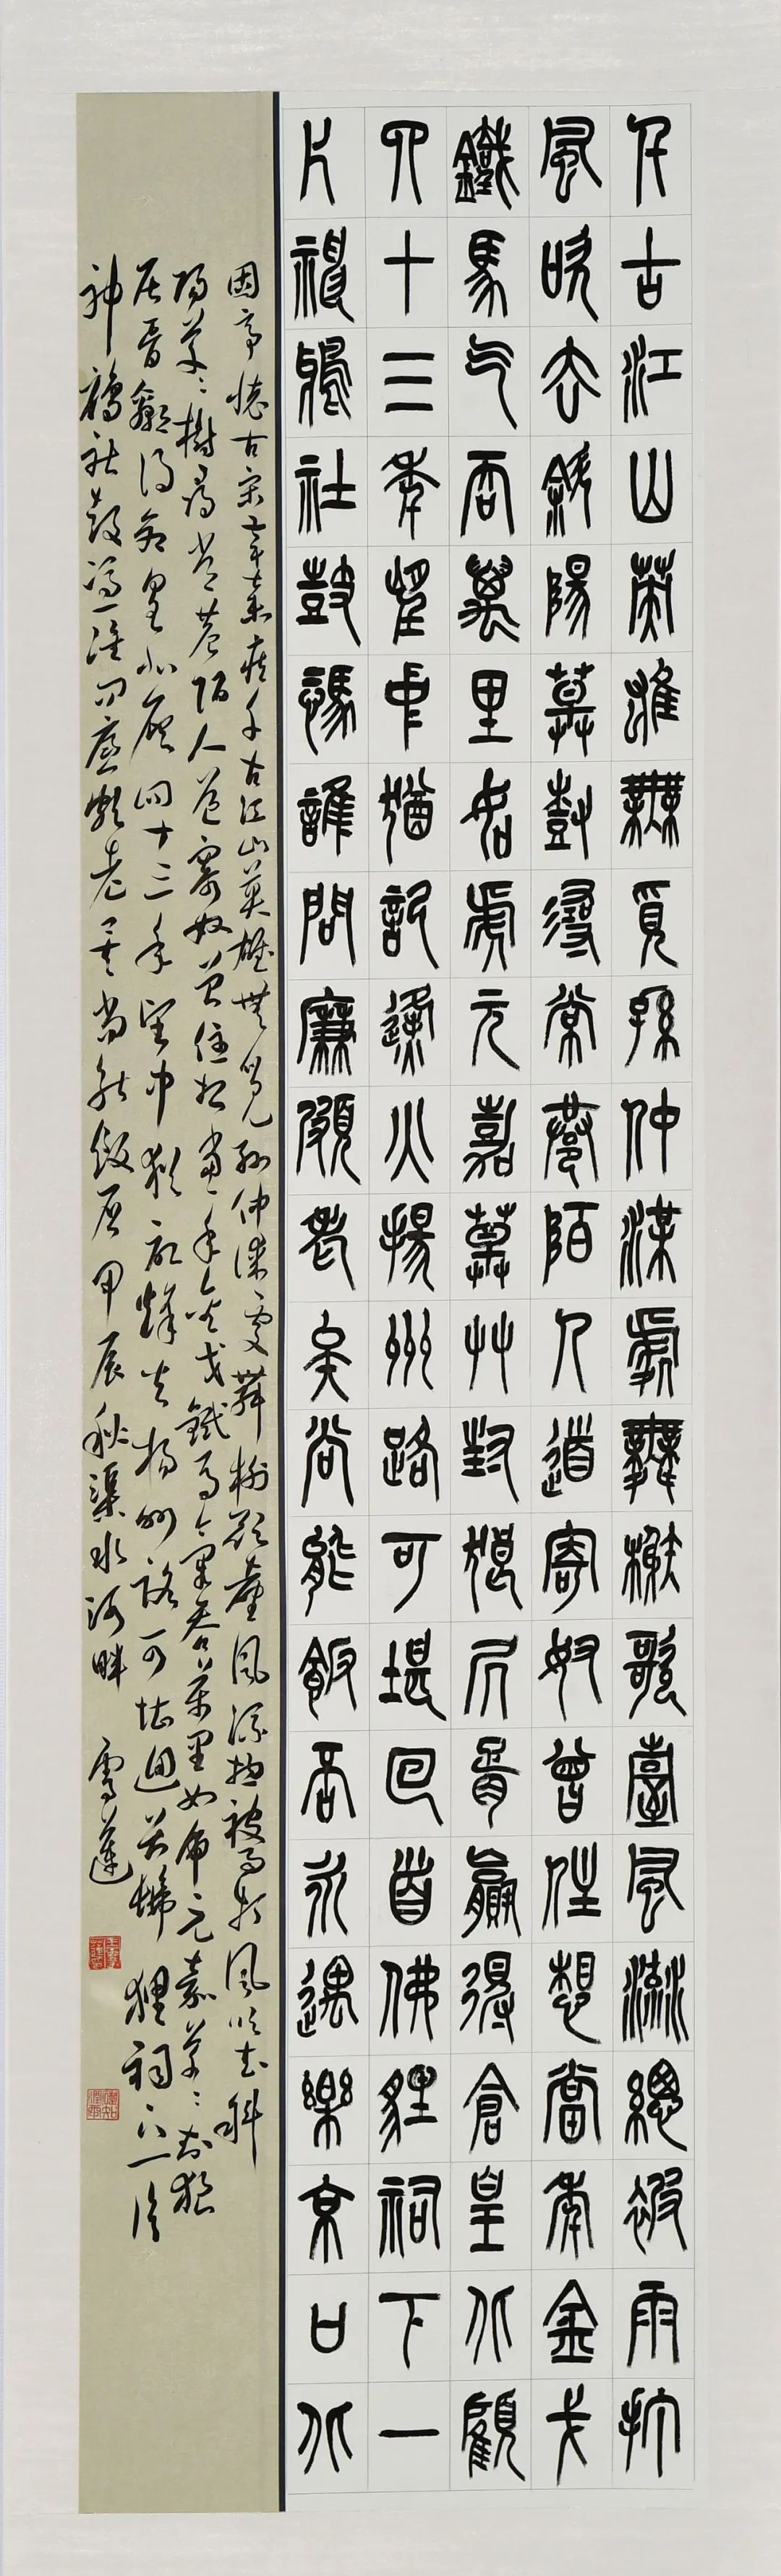 千古江山英雄無覓孫仲謀處舞榭歌臺風流總被雨打
風吹去斜陽草樹尋常巷陌人道寄奴曾住想當年金戈
鐵馬氣吞萬里如虎元嘉草草封狼居胥贏得倉皇北顧
四十三年望中猶記烽火揚州路可堪回首佛貍祠下一
片神鴉社鼓憑誰問廉頗老矣尚能飯否永遇樂京口北
固亭懷古宋辛棄疾千古江山英雄無覓孫仲謀處舞榭歌臺風流總被雨打風吹去斜
陽草樹尋常巷陌人道寄奴曾住想當年金戈鐵馬氣吞萬里如虎元嘉草草封狼
居胥贏得倉皇北顧四十三年望中猶記烽火揚州路可堪迴首佛狸祠下一片
神鴉社鼓憑誰問廉頗老矣尚能飯否甲辰秋渠水河畔 雪蓮